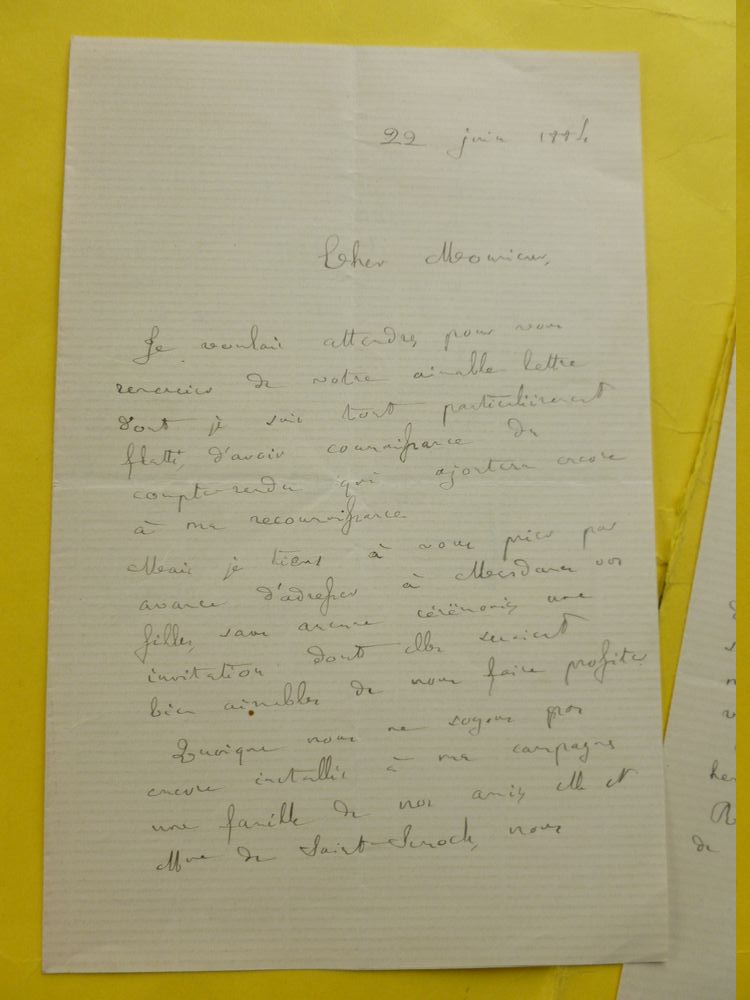 22 juin 188
Cher Monsieur,
Je voulais attendre, pour vous
remercier de votre aimable lettre
dont je suis tout particulièrement
flatté, d'avoir connaissance du
compte-rendu qui ajoutera encore
à ma reconnaissance
Mais je tiens à vous prier par
avance d'adresser à Mesdames vos
filles, sans aucune cérémonie, une
invitation dont elles seraient
bien aimables de nous faire profiter
Quoique nous ne soyons pas
encore installés à ma campagne
une famille de nos amis, M et
Mme de Saint- nous
de